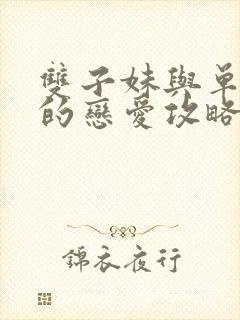 雙子妹與單
的戀愛攻略
錦衣夜行